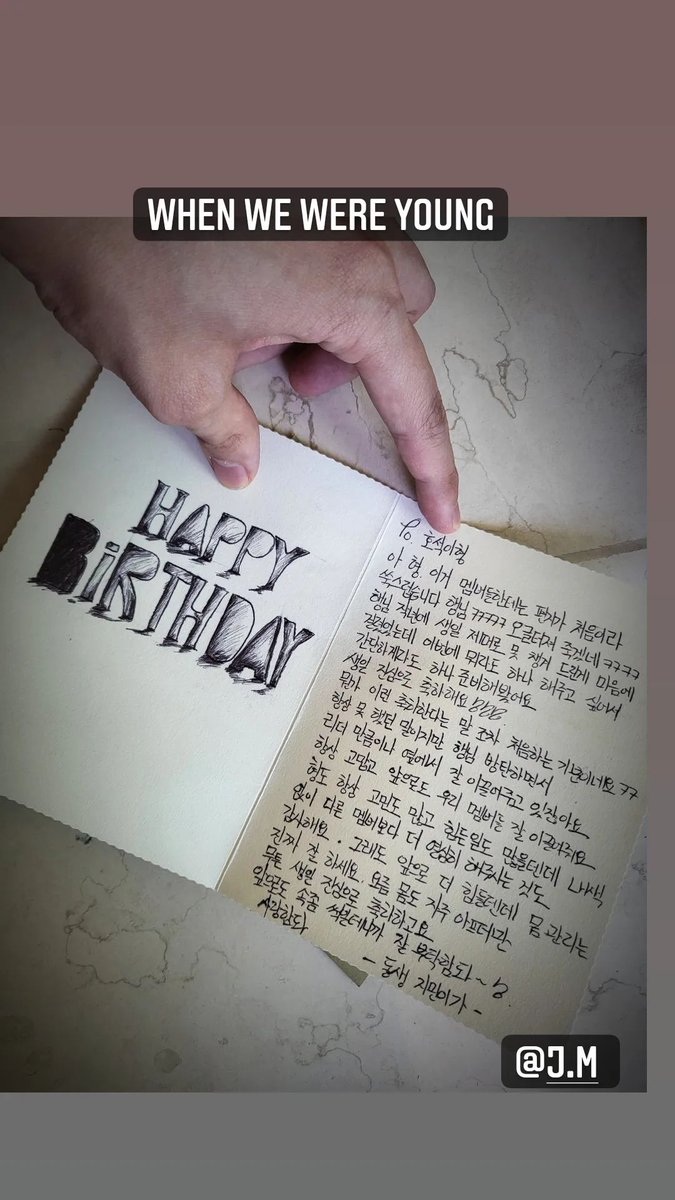 WHEN WE WERE YOUNG
HAPPY
BiRTHDAY
To. 호석이형
아 형 이거 멤버들한테는 편지가 처음이라
쑥스럽습니다 행님 ㅋㅋㅋㅋㅋ 오글터져 죽겠네 ㅋㅋㅋㅋ
행님 작년에 생일 제대로 못 챙겨 드린게 마음에
걸렸었는데 이번에 뭐라도 하나 해주고 싶어서
간단하게라도 하나 준비해봤어요
생일 진심으로 축하해요
뭔가 이런 축하한다는 말 조차 처음하는 기분이네요 ㅋㅋ
항상 못 했던 말이지만 행님 방탄하면서
리더 만큼이나 옆에서 잘 이끌어주고 있잖아요
항상 고맙고 앞으로도 우리 멤버들 잘 이끌어줘요
형도 항상 고민도 많고 힘든일도 많을텐데 내색
없이 다른 멤버보다 더 열심히 해주시는 것도
감사해요. 그래도 앞으로 더 힘들텐데 몸 관리는
진짜 잘 하세요 요즘 몸도 자주 아프더만
무튼 생일 진심으로 축하하고요
앞으로도 속좀 썩일테니까 잘 부탁함돠~
사랑함돠
- 동생 지민이가 -
@J.M